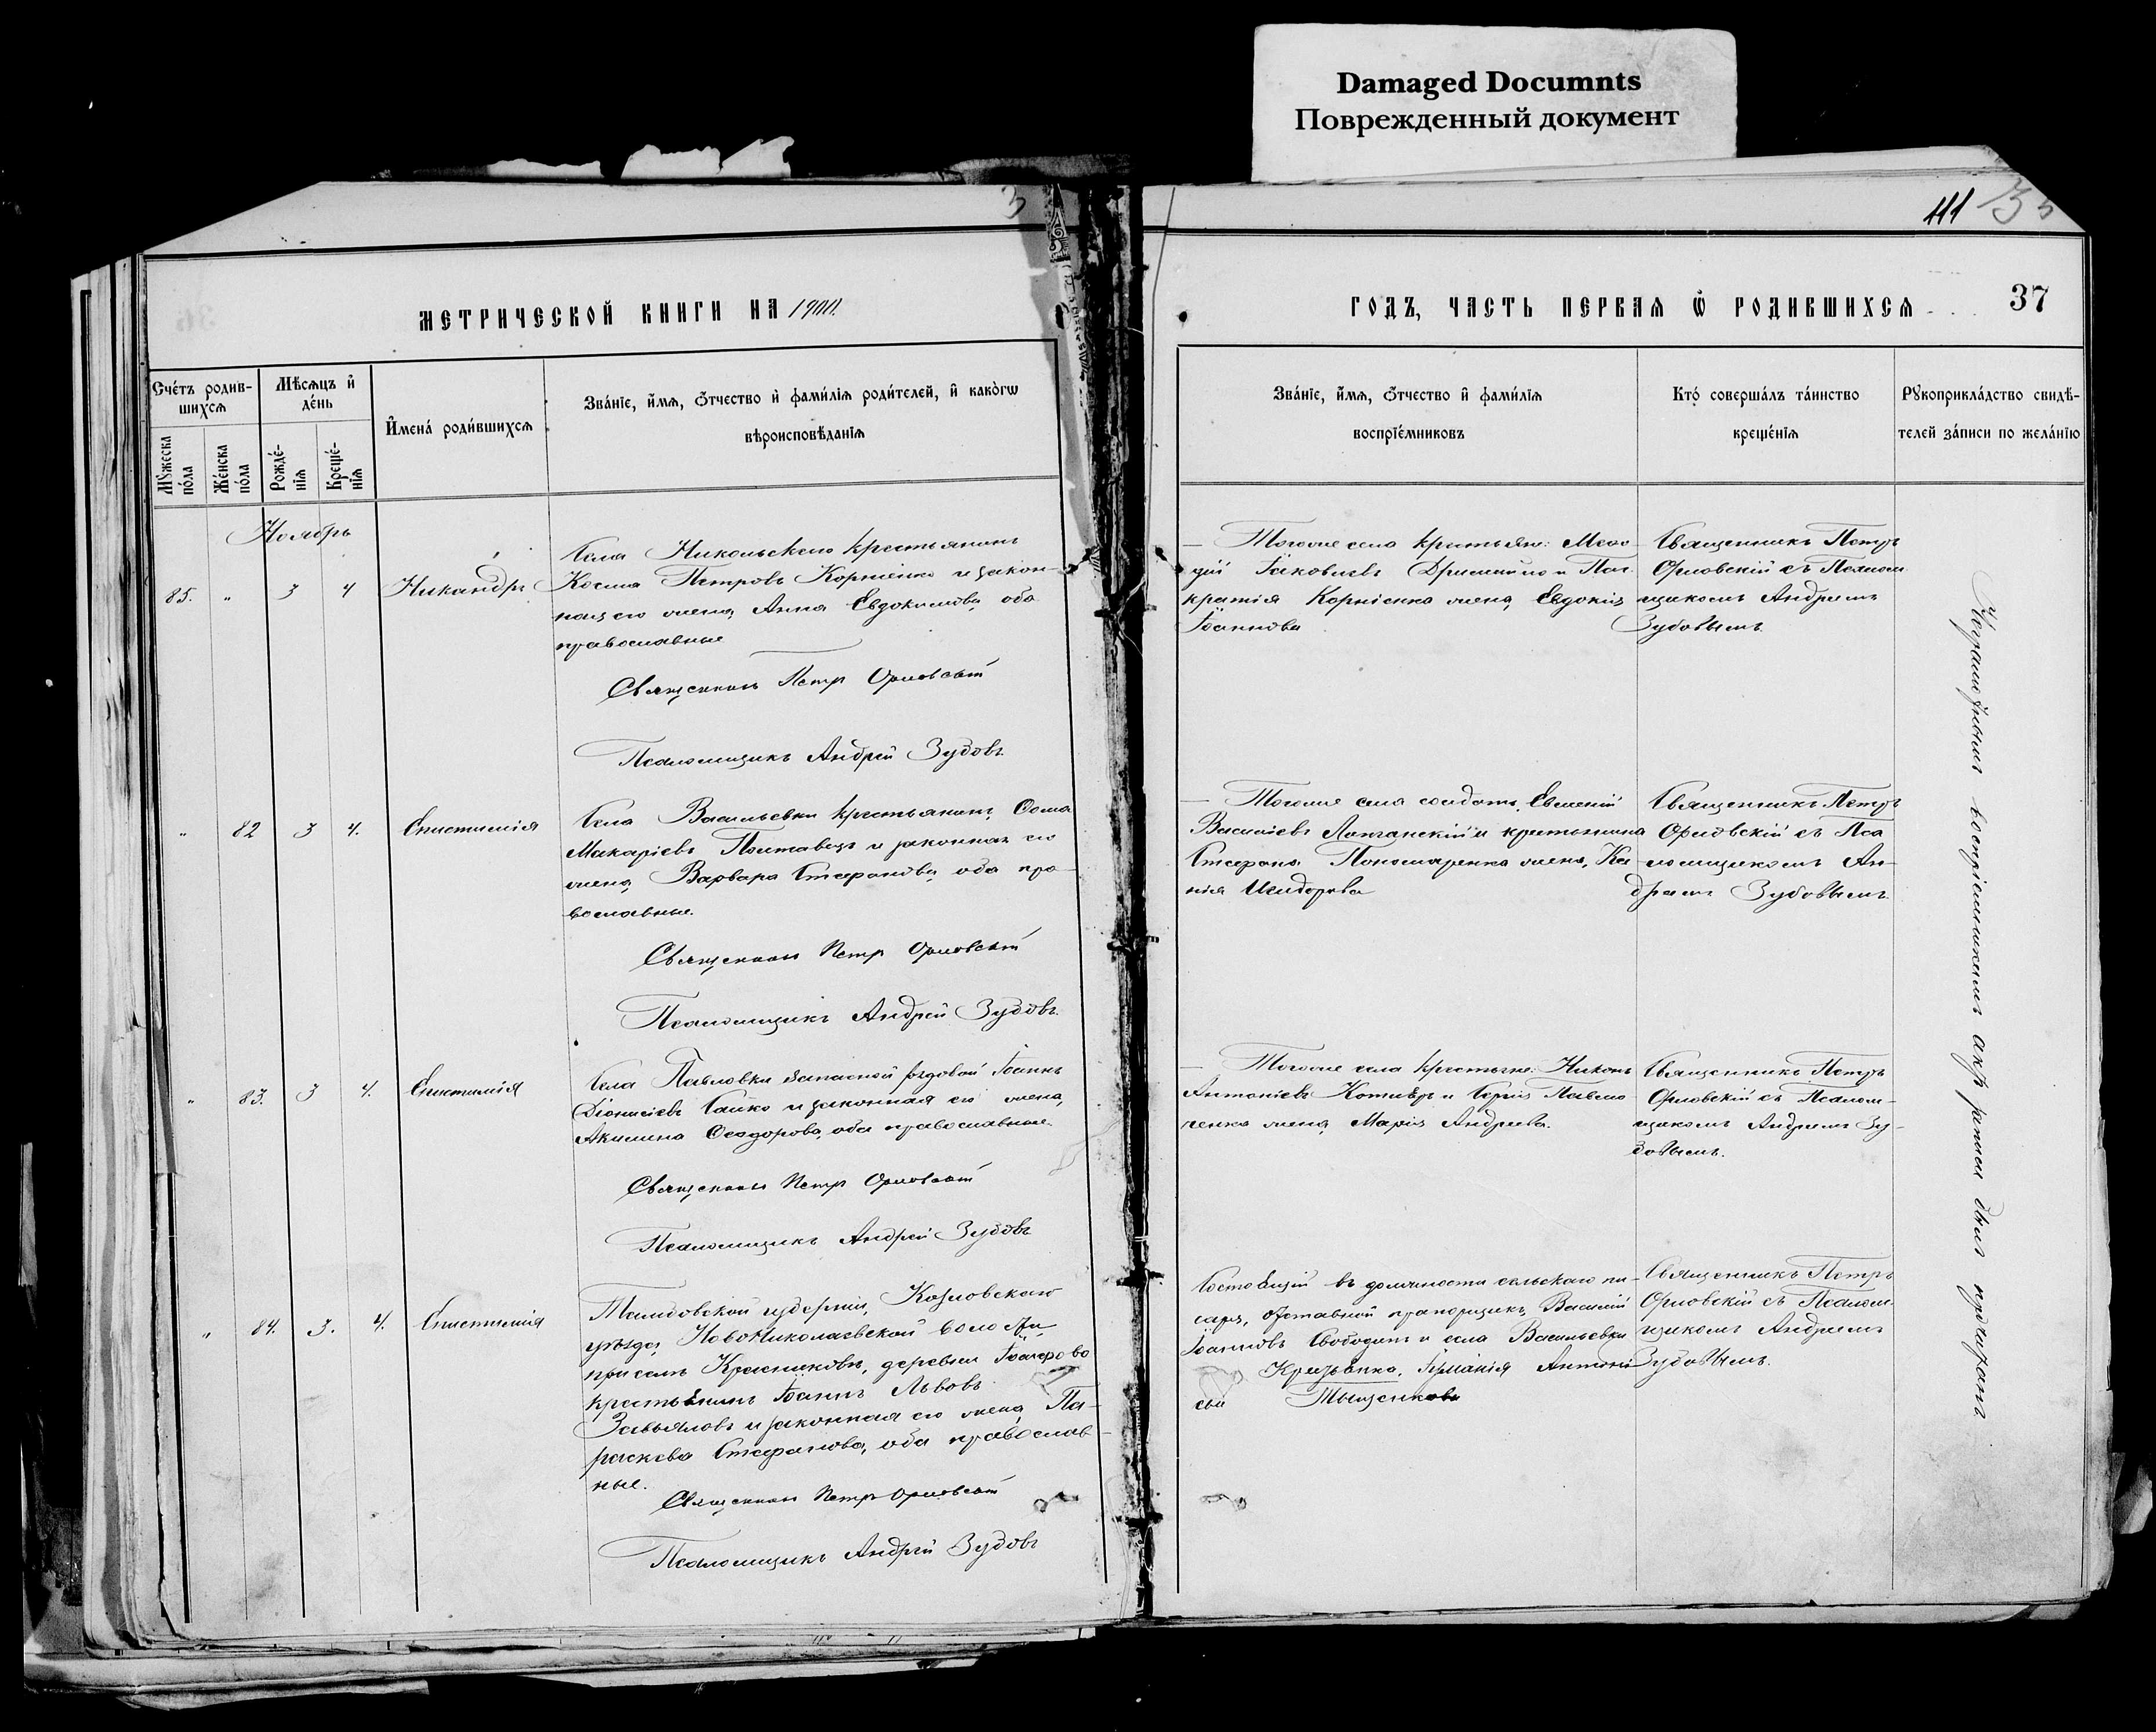 Damaged Documnts
Поврежденный документ
111
37
МЕТРИЧЕСКОЙ КНИГИ НА 1900.
ГОДЪ, ЧАСТЬ ПЕРВАЯ Ѿ РОДИВШИХСЯ
Счётъ родив-
шихся
Мѣсяцъ и
день
Мꙋжеска
пола
Женска
пола
Рожде-
нія
Креще-
нія
Имена родившихся
Званіе, имя, отчество и фамилія родителей, и какогѡ
вѣроисповѣданія
Званіе, имя, отчество и фамилія
воспріемниковъ
Кто совершалъ таинство
крещенія
Рꙋкоприкладство свидѣ-
телей записи по желанію
Ноябрь
85. " 3 4 Никандръ
Села Никольскаго крестьянинъ
Косма Петровъ Корніенко и закон-
ная его жена Анна Евдокимова, оба
православные
Священникъ Петр Орловскій
Псаломщикъ Андрей Зубовъ.
Тогоже села крестьян:
Іаковлевъ
кратія Корніенка жена, Евдокія
Іоаннова
Священникъ Петръ
Орловскій съ Псалом-
щикомъ Андреемъ
Зубовымъ.
" 82 3 4. Епистимія
Села Васильевки крестьянинъ, Ѳома
Макаріевъ Полтавецъ и законная его
жена, Варвара Стефанова, оба пра-
вославные.
Священникъ Петр Орловскій
Псаломщикъ Андрей Зубовъ.
Тогоже села солдатъ, Евгеній
Василіевъ и крестьянина
Стефана Пономаренка жена, Ксе-
нія Исидорова
Священникъ Петръ
Орловскій съ Пса
ломщикомъ Ан-
дреемъ Зубовымъ.
" 83. 3 4. Епистимія
Села Павловки запасной рядовой Іоаннъ
Діонисіевъ Сайко и законная его жена,
Акилина Ѳеодорова, оба православные.
Священникъ Петр Орловскій
Псаломщикъ Андрей Зубовъ
Тогоже села крестьяне: Никонъ
Антоніевъ и Сергія Павло
ченка жена, Марія Андреева.
Священникъ Петръ
Орловскій съ Псалом-
щикомъ Андреемъ Зу-
бовымъ.
" 84. 3. 4. Епистимія
Тамбовской губерніи, Козловскаго
уѣзда, Новониколаевской волости,
деревни
крестьянинъ Іоаннъ Львовъ
Завьяловъ и законная его жена, Па-
раскева Стефанова, оба православ-
ные.
Священникъ Петр Орловскій
Псаломщикъ Андрей Зубовъ
Состоящій въ должности сельскаго пи-
саря, отставной прапорщикъ, Василій
Іоанновъ Свободинъ и села Васильевки
Тыщенкова
Священникъ Петръ
Орловскій съ Псалом-
щикомъ Андреемъ
Зубовымъ.
Неграмотнымъ воспріемникамъ актъ записи былъ прочитанъ.